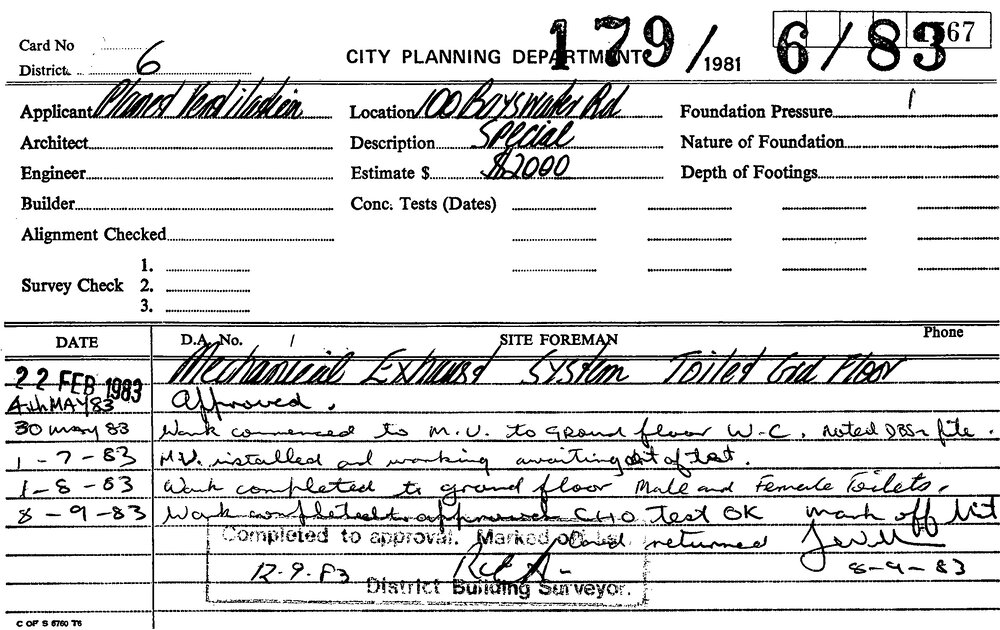 Card No
District 6
CITY PLANNING DEPARTMENT 179/1981 6/83
67
Applicant Planed Ventilation Location 100 Bayswater Rd Foundation Pressure
Architect Description Special Nature of Foundation
Engineer Estimate $ $2000 Depth of Footings
Builder Conc. Tests (Dates)
Alignment Checked
1.
Survey Check 2.
3.
DATE D.A. No. SITE FOREMAN Phone
22 FEB 1983 Mechanical Exhaust System Toilet Gnd Floor
4th MAY 83 Approved.
30 may 83 Work commenced to M.V. to ground floor W.C. noted DBS's file.
1-7-83 M.V. installed and working awaiting of test.
1-8-83 Work completed to ground floor Male and Female Toilets.
8-9-83 Work completed to approved CHO Test OK mark off list
Completed to approval. Marked off
Card returned
12.9.83 8-9-83
District Building Surveyor.
C OF S 6760 T6